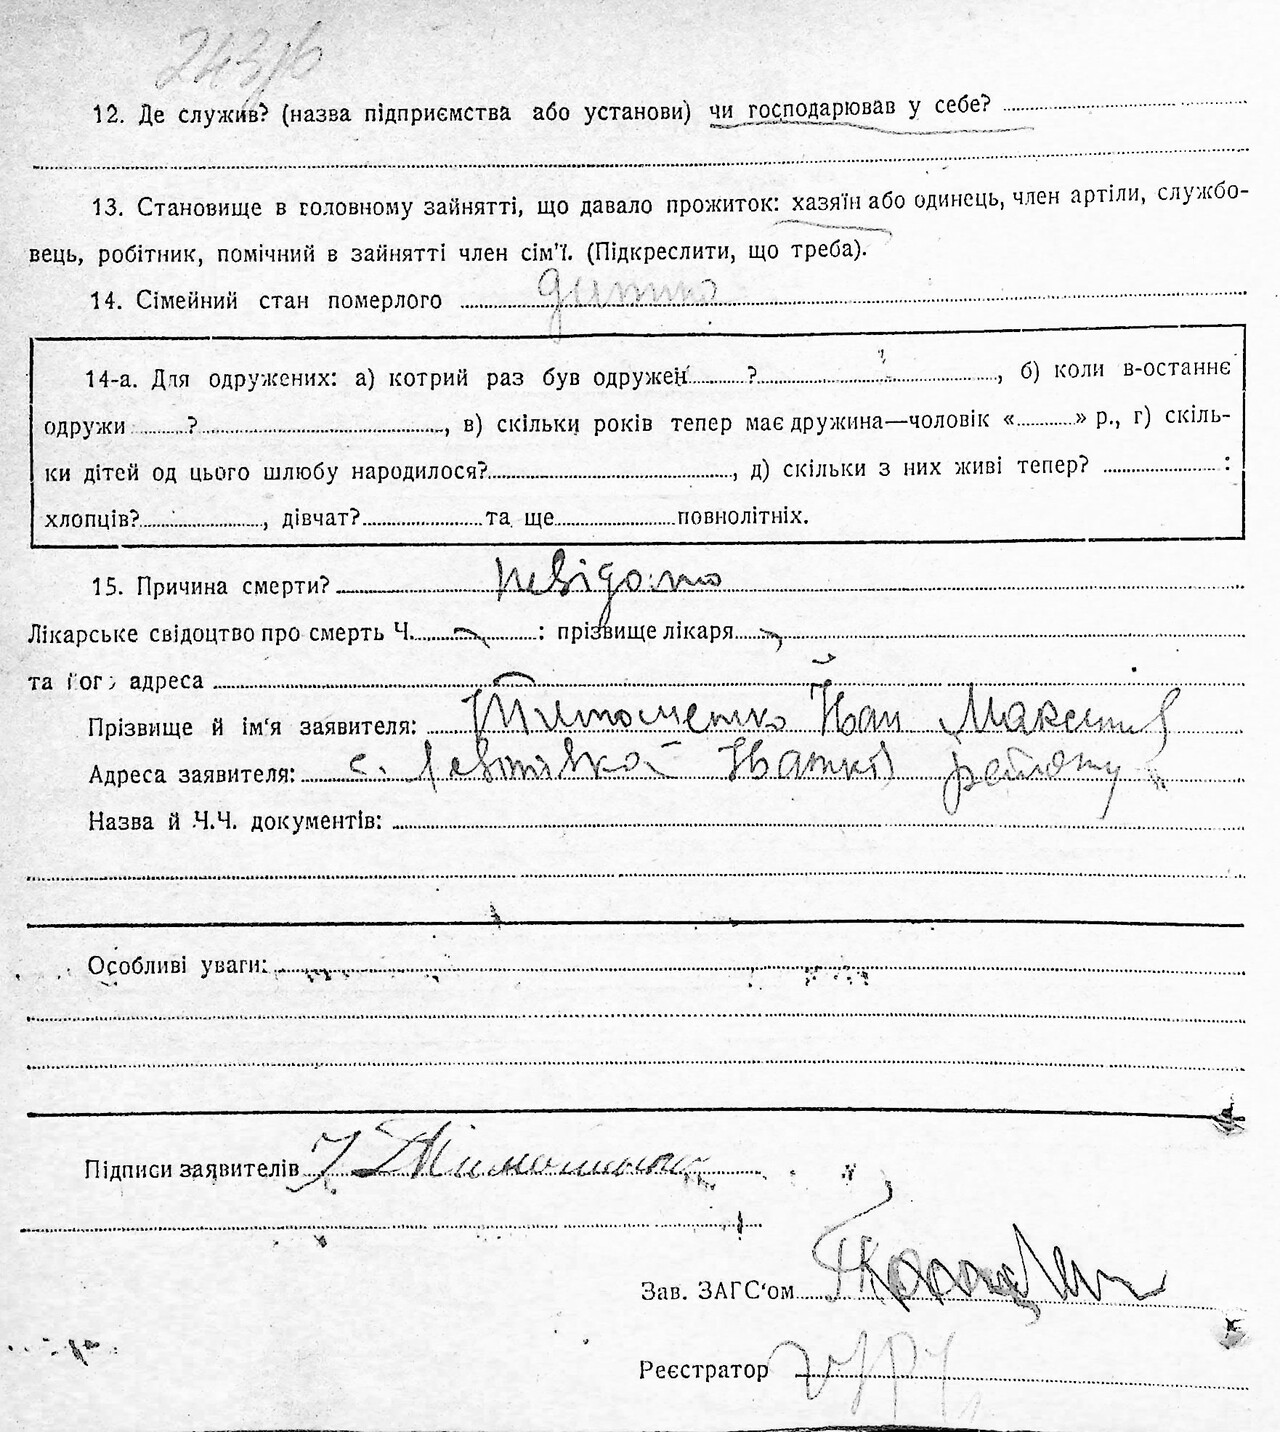 12. Де служив? (назва підприємства або установи) чи господарював у себе?
13. Становище в головному зайнятті, що давало прожиток: хазяїн або одинець, член артіли, службо-
вець, робітник, помічний в зайнятті член сім'ї. (Підкреслити, що треба).
14. Сімейний стан померлого дитина
14-а. Для одружених: а) котрий раз був одружен ? , б) коли в-останнє
одружи ? , в) скільки років тепер має дружина—чоловік « » р., г) скіль-
ки дітей од цього шлюбу народилося? , д) скільки з них живі тепер? :
хлопців? , дівчат? та ще повнолітніх.
15. Причина смерти? невідомо
Лікарське свідоцтво про смерть Ч. : прізвище лікаря
та його адреса
Прізвище й ім'я заявителя: Тимошенко Іван Максимів
Адреса заявителя: с. району
Назва й Ч.Ч. документів:
Особливі уваги:
Підписи заявителів І Тимошенко
Зав. ЗАГС'ом
Реєстратор